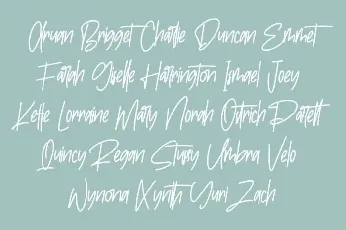 Alruan Brigget Charlie Duncan Emmet
Farah Giselle Harrington Ismael Joey
Kelle Lorraine Matty Norah Ostrich Partett
Quincy Regan Stuary Umbra Velo
Wynona Xynth Yuri Zach